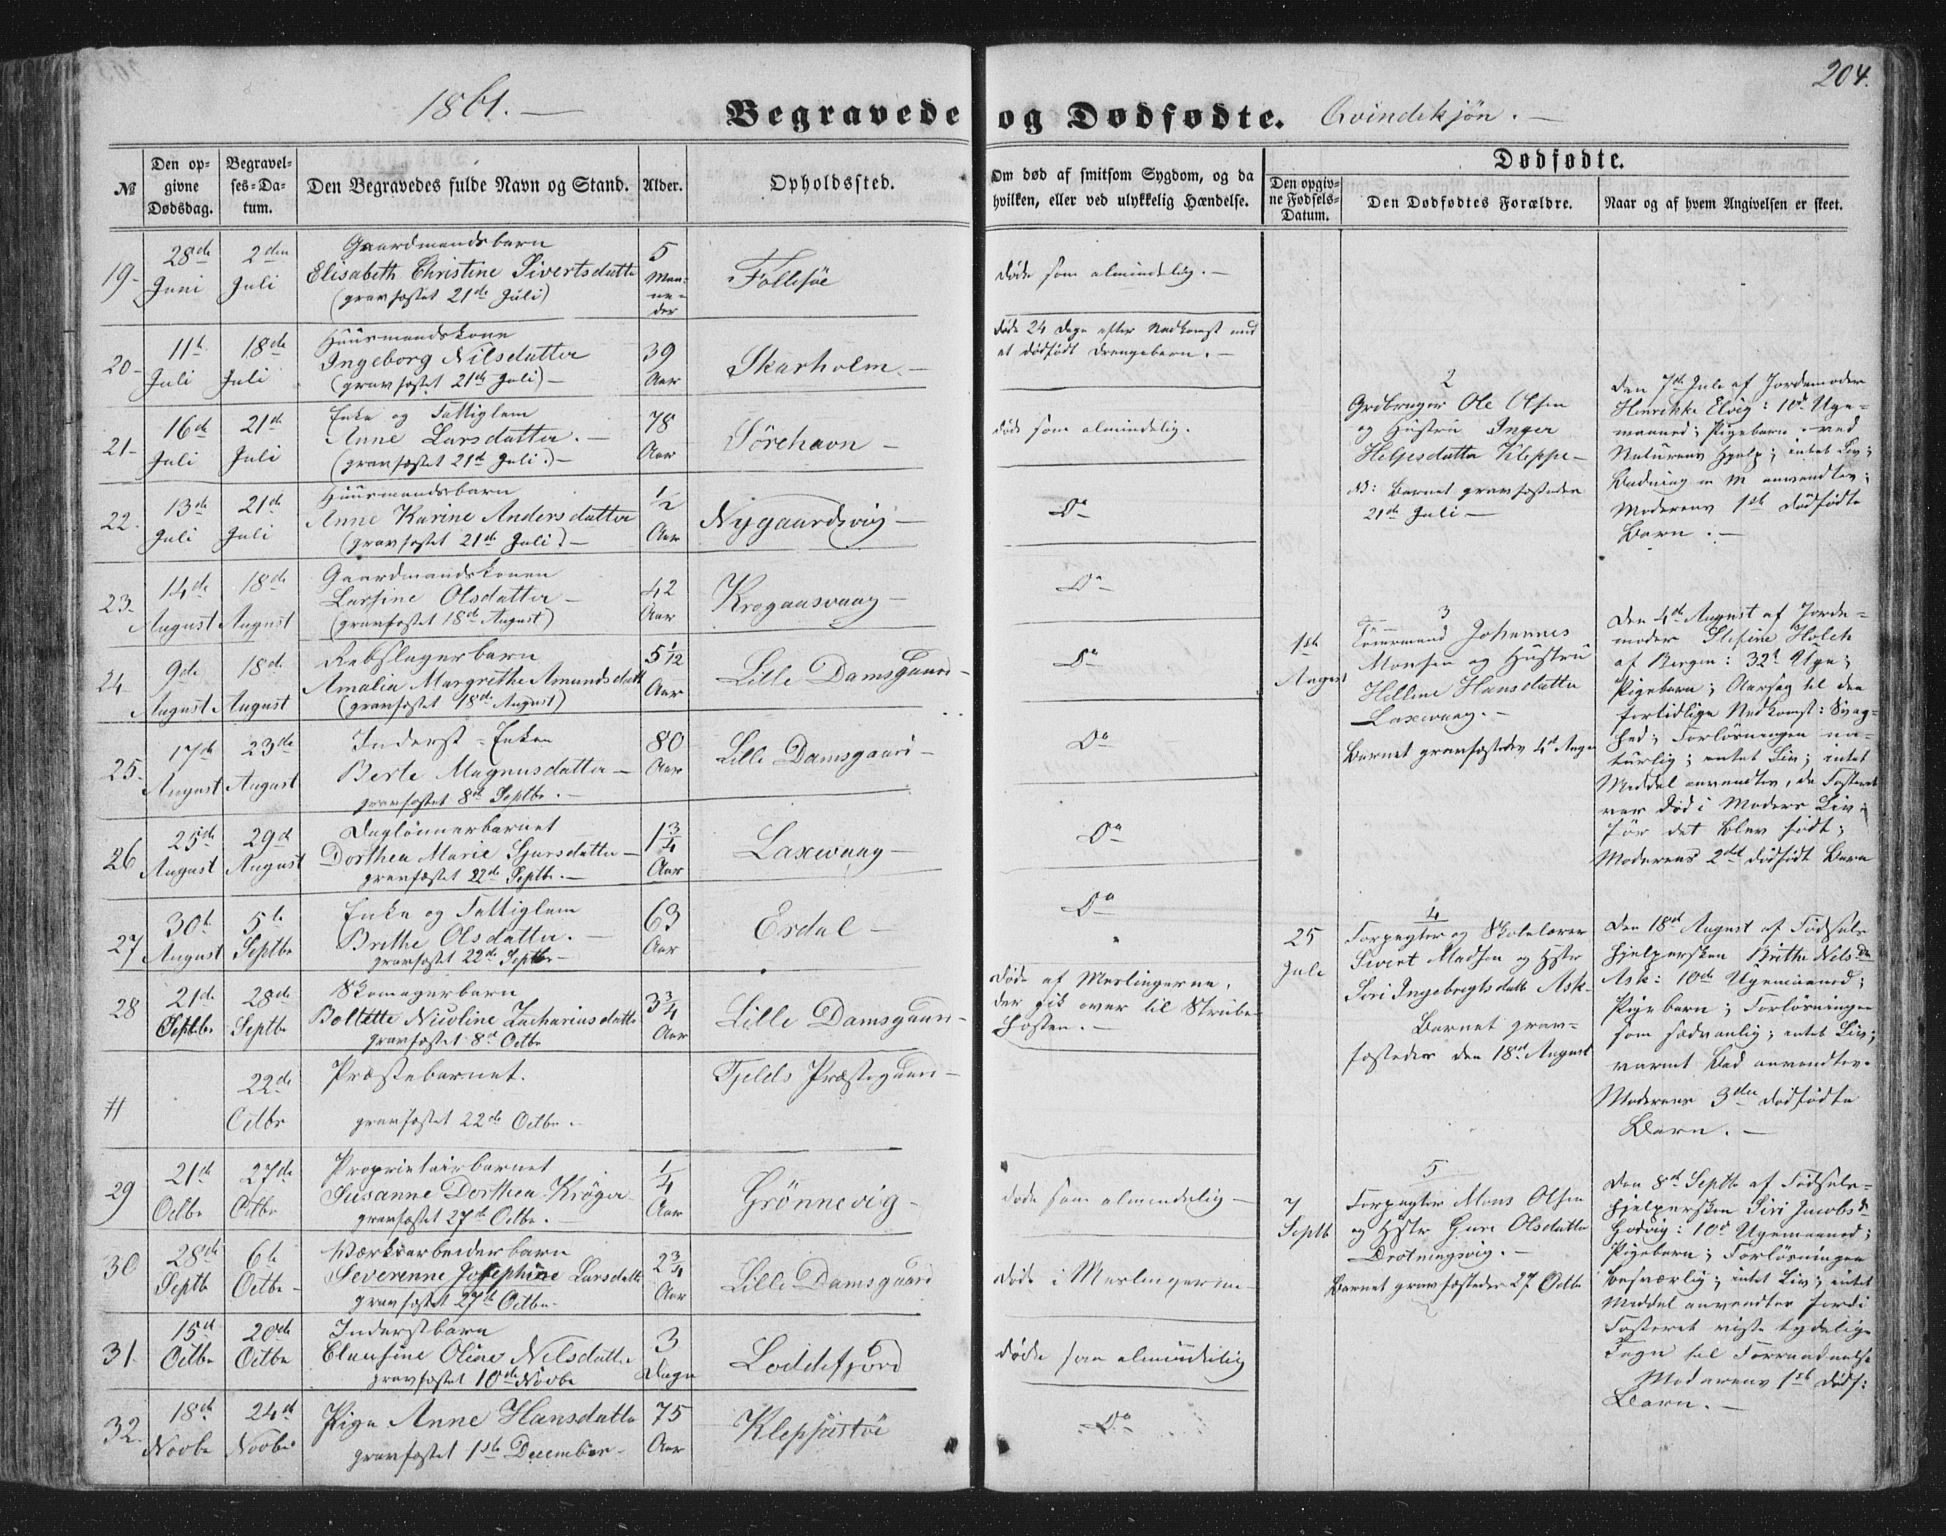 1861. —
204.
Begravede og Dødfødte. Qvindekjøn. —
№
Den opgivne Dødsdag.
Begravelses-Datum.
Den Begravedes fulde Navn og Stand.
Alder.
Opholdssted.
Om død af smitsom Sygdom, og da hvilken, eller ved ulykkelig Hændelse.
Dødfødte.
Den opgivne Fødsels-Datum.
Den Dødfødtes Forældre.
Naar og af hvem Angivelsen er skeet.
19 28de Juni 2den Juli Gaardmandsbarn
Elisabeth Christine Sivertsdatter
(gravfæstet 21de Juli)
5 Maaneder Follesøe døde som almindelig. —
20 11te Juli 18de Juli Huusmandskone
Ingeborg Nilsdatter
(gravfæstet 21de Juli) —
39 Aar Skarholm. — døde 24 Dage efter Nedkomst med
et dødfødt Drengebarn. —
21 16de Juli 21de Juli Enke og Fattiglem
Anne Larsdatter. —
(gravfæstet 21de Juli.) —
78 Aar Sørehavn — døde som almindelig.
22. 13de Juli 21de Juli Huusmandsbarn
Anne Karine Andersdatter
(gravfæstet 21de Juli) —
1/2 Aar Nygaardsvig — Do
23 14de August 18de August Gaardmandskonen
Larsine Olsdatter —
(gravfæstet 18de August)
42 Aar Krogaasvaag — Do
24 9de August 18de August Rebslagerbarn
Amalia Margrethe Amundsdatt
(gravfæstet 18de August)
5 1/12 Aar Lille Damsgaard — Do
25 17de August 23de August Inderst-Enken
Berte Magnusdatter —
gravfæstet 8de Septbr. —
80 Aar Lille Damsgaard — Do
26 25de August 29de August Daglønnerbarnet
Dorthea Marie Sjursdatter —
gravfæstet 22de Septbr. —
1 3/4 Aar Laxevaag — Do
27 30te August 5te Septbr Enke og Fattiglem
Brithe Olsdatter. —
gravfæstet 22de Septbr —
63 Aar Erdal — Do
28 21de Septbr 28de Septbr Skomagerbarn
Boltette Nicoline Zachariasdatte
gravfæstet 8de Octbr
3 3/4 Aar Lille Damsgaard — døde af Meslingerne,
der gik over til Strube-
Hosten. —
H 22de Octbr Præstebarnet.
gravfæstet 22de Octbr.
Fjelds Præstegaard —
29 21de Octbr 27de Octbr Proprietairbarnet
Susanne Dorthea Krøger
gravfæstet 27de Octbr. —
1/4 Aar Grønnevig — døde som almindelig —
30 28de Septb 6te Octbr — Værksarbeiderbarn
Severenne Josephine Larsdatte
gravfæstet 27de Octbr.
2 3/4 Aar Lille Damsgaard døde i Meslingerne —
31. 15de Octbr 20de Octbr Inderstbarn
Clausine Oline Nilsdatter
gravfæstet 10de Novbr
3 Dage Loddefjord døde som almindelig
32. 18de Novbr 24de Novbr Pige Anne Hansdatte
gravfæstet 1ste December —
75 Aar Kleppestøe Do
2
Grdbruger Ole Olsen
og Hustru Inger
Helgesdatter Kleppe —
NB: Barnet gravfæstedes
21de Juli —
Den 7de Juli af Jordemoder
Hinrikke Elvig: 10de Uge-
maaned; Pigebarn ved
Naturens Hjelp; intet Liv;
Moderens 1ste dødfødte
Barn. —
3
1ste August
Tømrmand Johannes
Monsen og Hustru
Helline Hansdatter
Laxevaag. —
Barnet gravfæstedes 4de Augu
Den 4de August af Jorde-
moder Stefine Holck
af Bergen: 32te Uge;
Pigebarn; Aarsag til den
fortidlige Nedkomst: Svag-
hed; Forløsningen na-
turlig; intet Liv; intet
Middel anvendtes, da Fosteret
var død i Moders Liv
før det blev født;
Moderens 2det dødfødt Barn
4
25 Juli
Forpagter og Skolelærer
Sivert Madsen og Hstr
Siri Ingebregtsdatt Ask. —
Barnet grav-
fæstedes den 18de August
Den 18de August af Fødsels-
hjelpersken Brithe Nilsda
Ask: 10de Ugemaaned;
Pigebarn; Forløsningen
som sædvanlig; intet Liv;
varmt Bad anvendtes.
Moderens 3die dødfødte
Barn. —
5
7 Septb
Forpagter Mons Olsen
og Hstr Guri Olsdatter
Drotningsvig. —
Barnet gravfæstedes 27 Octbr
Den 8de Septbr af Fødsels-
hjelpersken Siri Jacobsd
Godvig: 10de Ugemaaned;
Pigebarn; Forløsningen
besværlig; intet Liv; intet
Middel anvendtes fordi
Fosteret viste tydelige
Tegn til Forraadnelse
Moderens 1ste dødf:
Barn. —